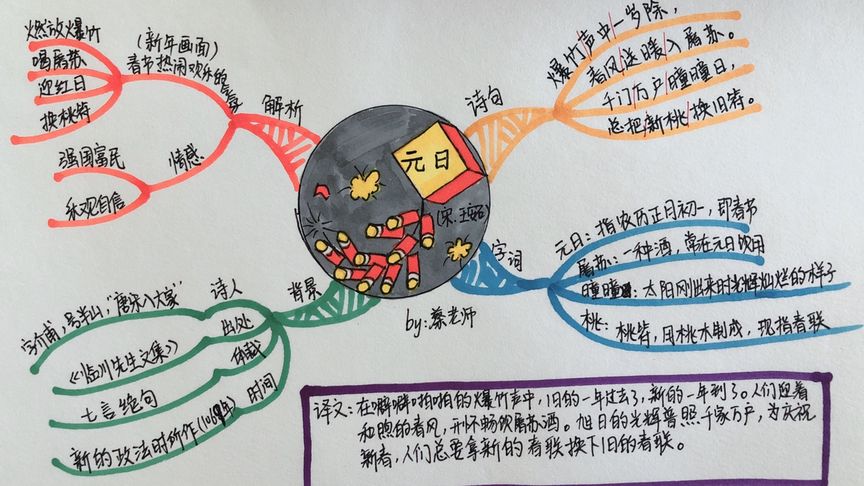 元日
(宋.王安石)
诗句
爆竹声中一岁除，
春风送暖入屠苏。
千门万户曈曈日，
总把新桃换旧符。
字词
元日：指农历正月初一，即春节
屠苏：一种酒，常在元日饮用
曈曈：太阳刚出来时光辉灿烂的样子
桃：桃符，用桃木制成，现指春联
解析
(新年画面)
春节热闹欢乐的
燃放爆竹
喝屠苏
迎红日
换桃符
情感
强国富民
乐观自信
背景
诗人
字介甫，号半山，"唐宋八大家"
出处
《临川先生文集》
体裁
七言绝句
时间
新的政法时所作(1069年)
by:蔡老师
译文：在噼噼啪啪的爆竹声中，旧的一年过去了，新的一年到了。人们迎着
和煦的春风，开怀畅饮屠苏酒。旭日的光辉普照千家万户，为庆祝
新春，人们总要拿新的春联换下旧的春联。